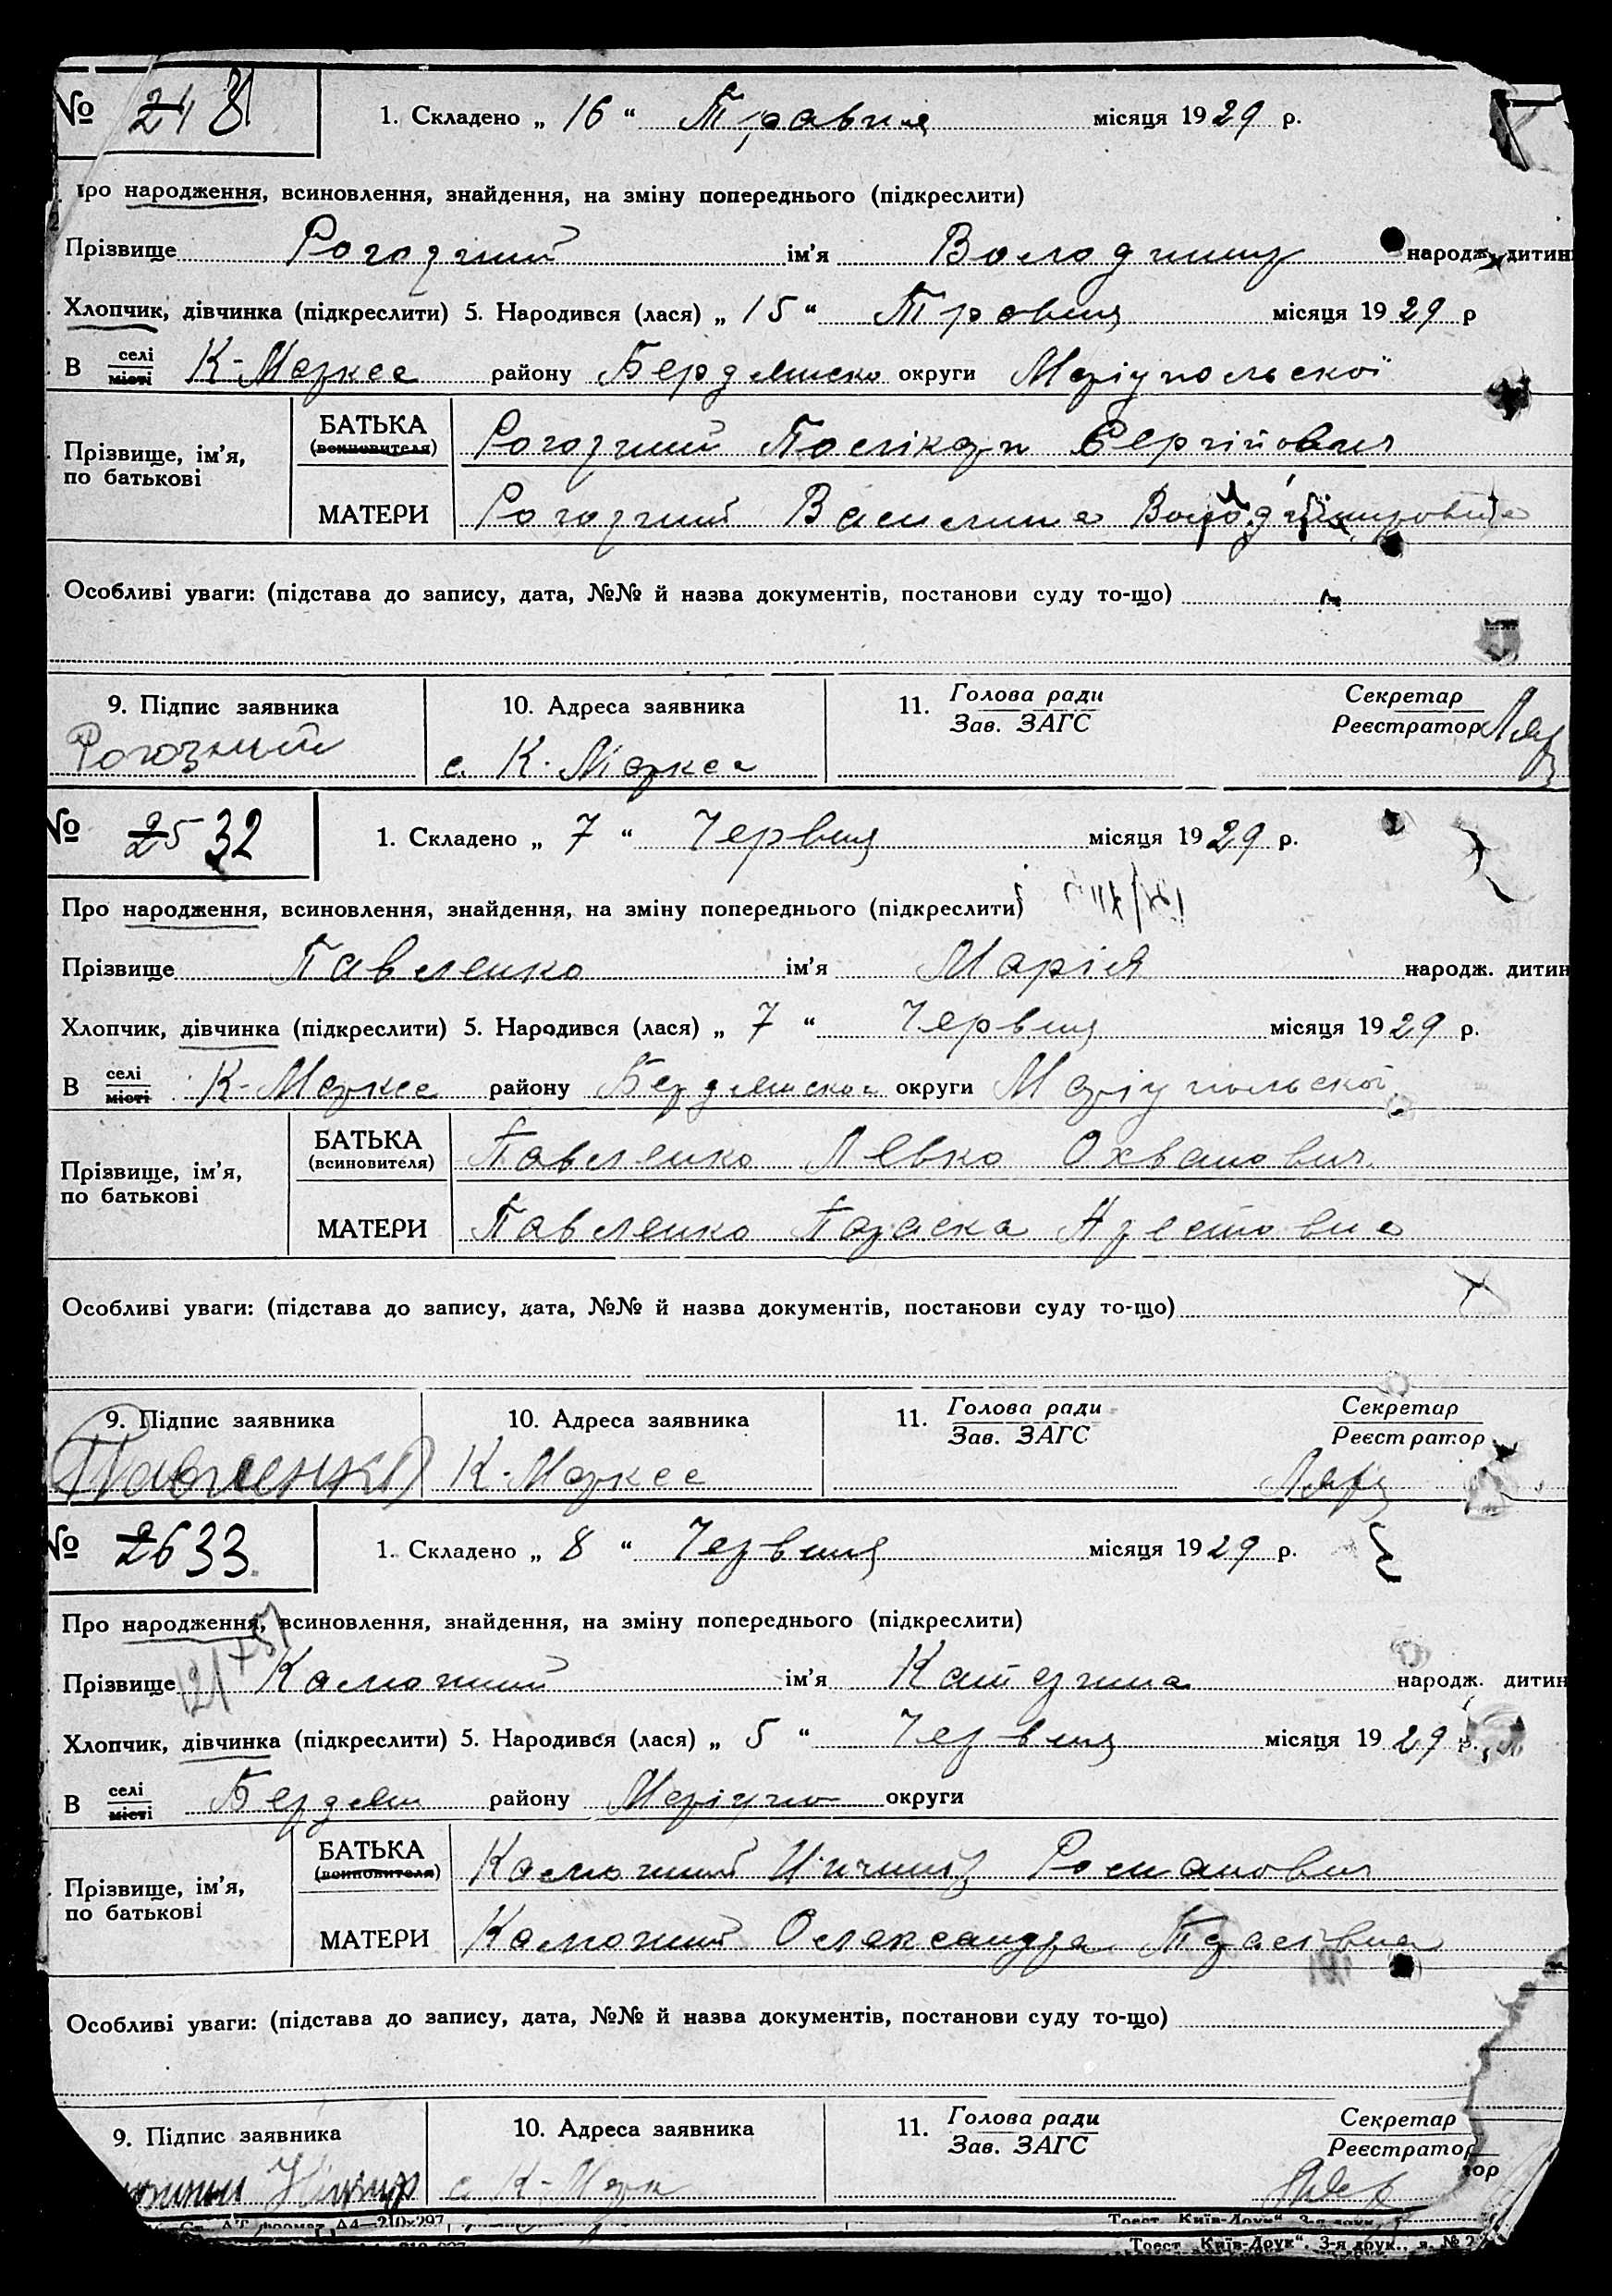 № 24 8 1. Складено „ 16 “ Травня місяця 1929 р.
про народження, всиновлення, знайдення, на зміну попереднього (підкреслити)
Прізвище Рогозний ім’я Володимир народж. дитин
Хлопчик, дівчинка (підкреслити) 5. Народився (лася) „ 15 “ Травня місяця 1929 р
В селі міста К-Маркса району Бердянсько округи Маріупольської
Прізвище, ім’я, по батькові
БАТЬКА (всиновителя) Рогозний Полікарп Сергійович
МАТЕРИ Рогозний Василина Володимировна
Особливі уваги: (підстава до запису, дата, №№ й назва документів, постанови суду то-що)
9. Підпис заявника 10. Адреса заявника 11. Голова ради Секретар
Зав. ЗАГС Реєстратор
Рогозний с. К. Маркса
№ 25 32 1. Складено „ 7 “ Червня місяця 1929 р.
Про народження, всиновлення, знайдення, на зміну попереднього (підкреслити)
Прізвище Павленко ім’я Марія народж. дитин
Хлопчик, дівчинка (підкреслити) 5. Народився (лася) „ 7 “ Червня місяця 1929 р.
В селі місті К-Маркса району Бердянсько округи Маріупольської
Прізвище, ім’я, по батькові
БАТЬКА (всиновителя) Павленко Левко
МАТЕРИ Павленко Параска
Особливі уваги: (підстава до запису, дата, №№ й назва документів, постанови суду то-що)
9. Підпис заявника 10. Адреса заявника 11. Голова ради Секретар
Зав. ЗАГС Реєстратор
Павленко К-Маркса
№ 26 33 1. Складено „ 8 “ Червня місяця 1929 р.
Про народження, всиновлення, знайдення, на зміну попереднього (підкреслити)
Прізвище Калюжний ім’я Катерина народж. дитин
Хлопчик, дівчинка (підкреслити) 5. Народився (лася) „ 5 “ Червня місяця 1929 р.
В селі місті Бердян району Маріупо округи
Прізвище, ім’я, по батькові
БАТЬКА (всиновителя) Калюжний Романович
МАТЕРИ Калюжний Олександра
Особливі уваги: (підстава до запису, дата, №№ й назва документів, постанови суду то-що)
9. Підпис заявника 10. Адреса заявника 11. Голова ради Секретар
Зав. ЗАГС Реєстратор
с К-Марк
формат А4—210×297
Трест „Київ-Друк“, 3-я друк.